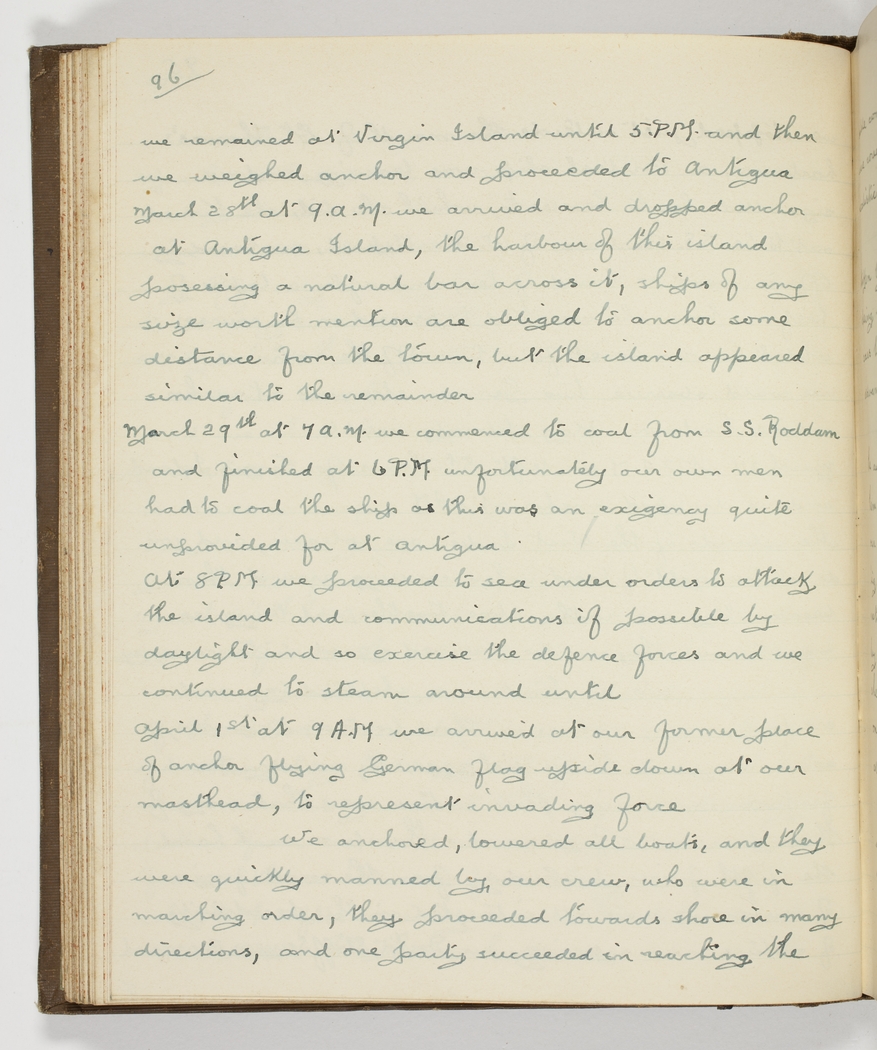 96
we remained at Virgin Island until 5.P.M. and then
we weighed anchor and proceeded to Antigua
March 28th at 9.a.M. we arrived and dropped anchor
at Antigua Island, the harbour of this island
posessing a natural bar across it, ships of any
size worth mention are obliged to anchor some
distance from the town, but the island appeared
similar to the remainder
March 29th at 7 a.M. we commenced to coal from S.S. Roddam
and finished at 6 P.M. unfortunately our own men
had to coal the ship as this was an exigency quite
unprovided for at Antigua.
At 8 PM we proceeded to sea under orders to attack
the island and communications if possible by
daylight and so exercise the defence forces and we
continued to steam around until
April 1st at 9 A.M we arrived at our former place
of anchor flying German flag upside down at our
masthead, to represent invading force
We anchored, lowered all boats, and they
were quickly manned by our crew, who were in
marching order, they proceeded towards shore in many
directions, and one party succeeded in reaching the